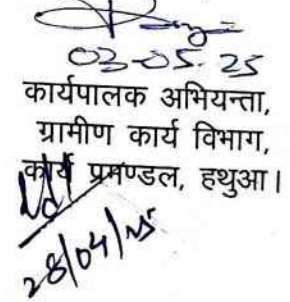 03-05-25
कार्यपालक अभियन्ता,
ग्रामीण कार्य विभाग,
कार्य प्रमण्डल, हथुआ।
28/04/25